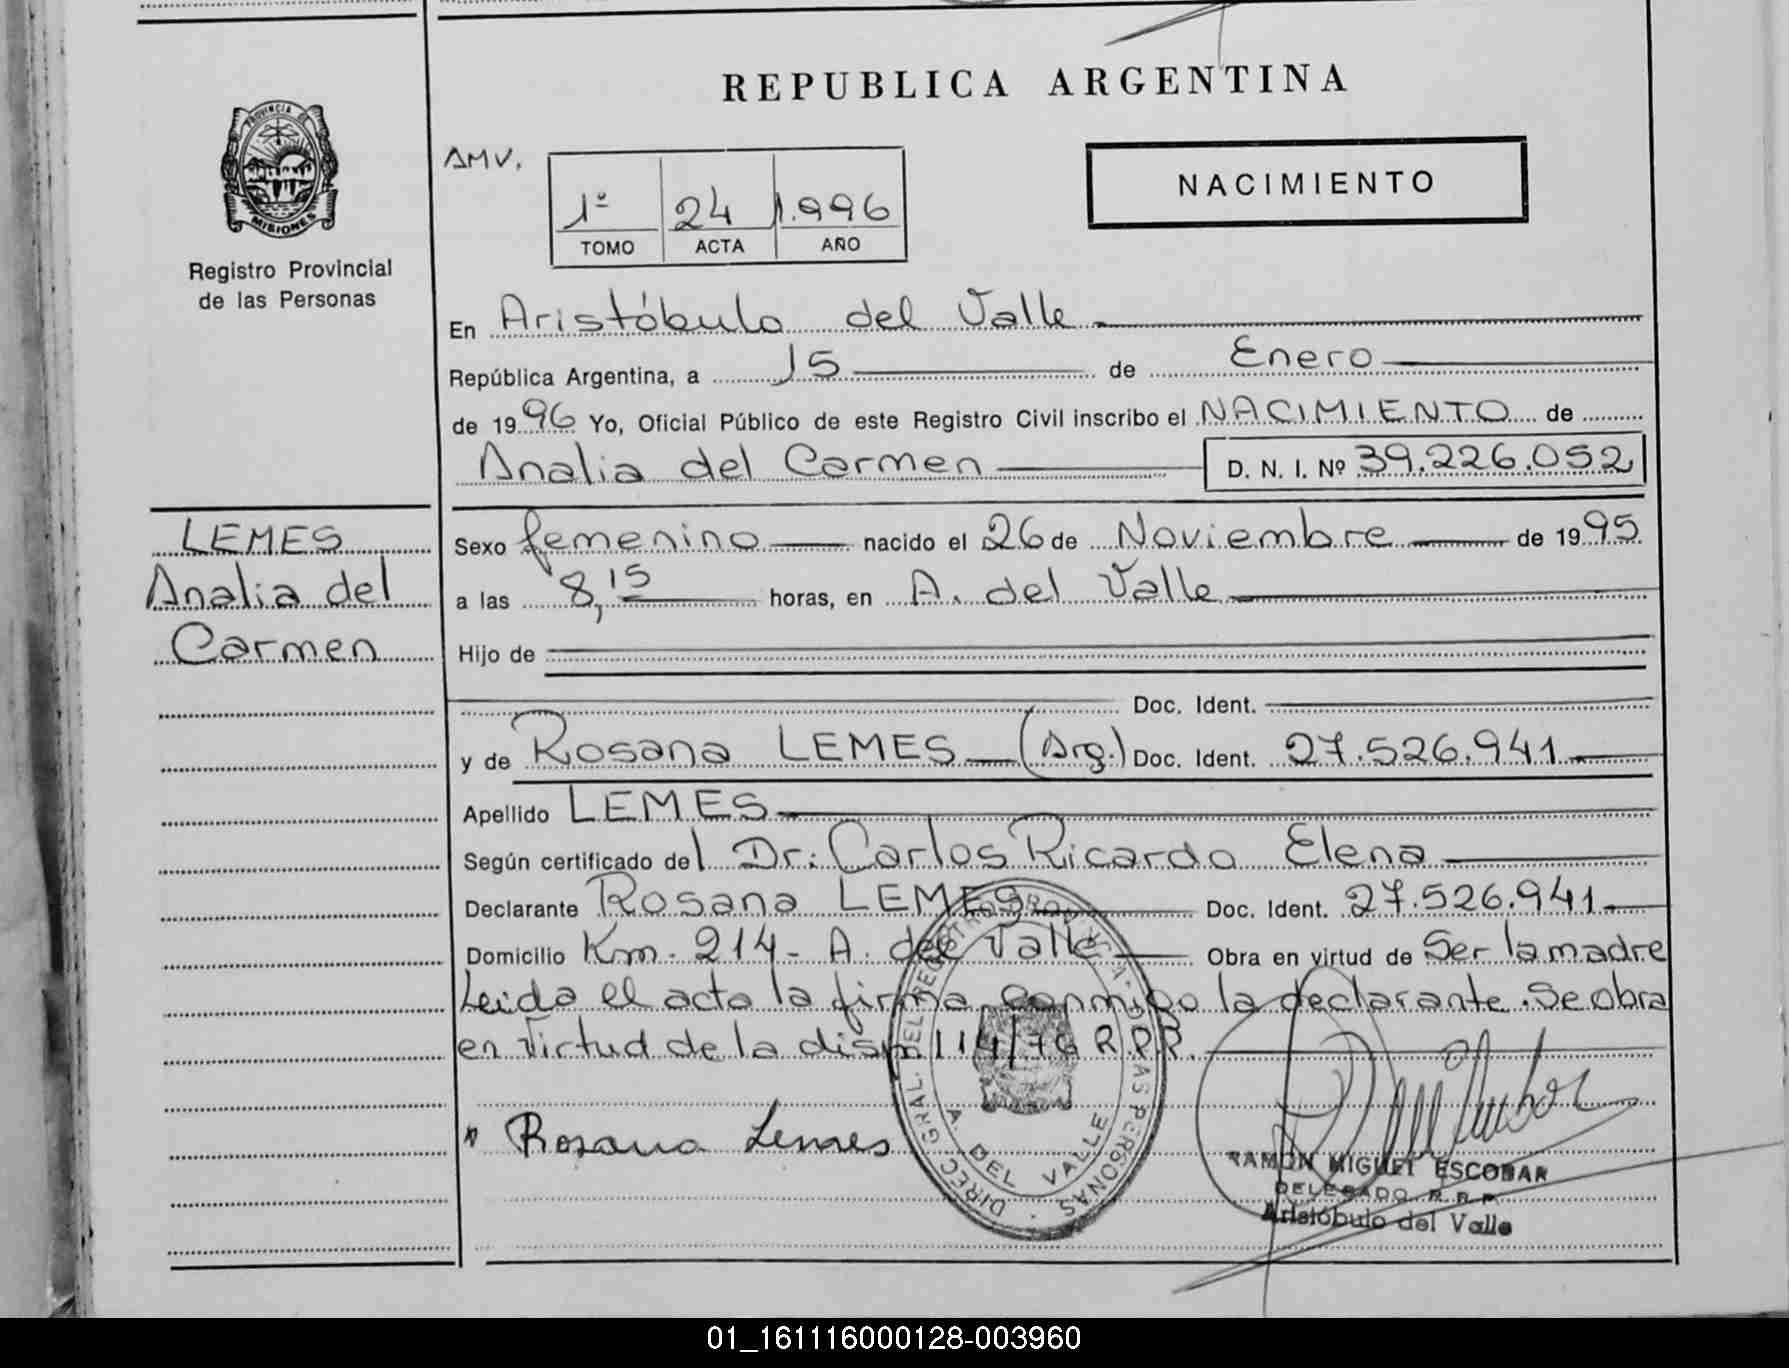 REPUBLICA ARGENTINA
PROVINCIA DE
MISIONES
Registro Provincial
de las Personas
AMV.
1º 24 1.996
TOMO ACTA AÑO
NACIMIENTO
En Aristóbulo del Valle
República Argentina, a 15 de Enero
de 1996 Yo, Oficial Público de este Registro Civil inscribo el NACIMIENTO de
Analia del Carmen D. N. I. Nº 39.226.052
LEMES
Analia del
Carmen
Sexo femenino nacido el 26 de Noviembre de 1995
a las 8,15 horas, en A. del Valle
Hijo de
Doc. Ident.
y de Rosana LEMES (Arg.) Doc. Ident. 27.526.941
Apellido LEMES
Según certificado del Dr: Carlos Ricardo Elena
Declarante Rosana LEMES Doc. Ident. 27.526.941
Domicilio Km. 214 - A. del Valle Obra en virtud de Ser la madre
Leida el acta la firma conmigo la declarante. Se obra
en virtud de la disp. 114/76 R.P.P.
Rosana Lemes
DIREC. GRAL. DEL REGISTRO PROVINCIAL DE LAS PERSONAS
A. DEL VALLE
RAMON MIGUEL ESCOBAR
DELEGADO R.R.P.
Aristóbulo del Valle
01_161116000128-003960